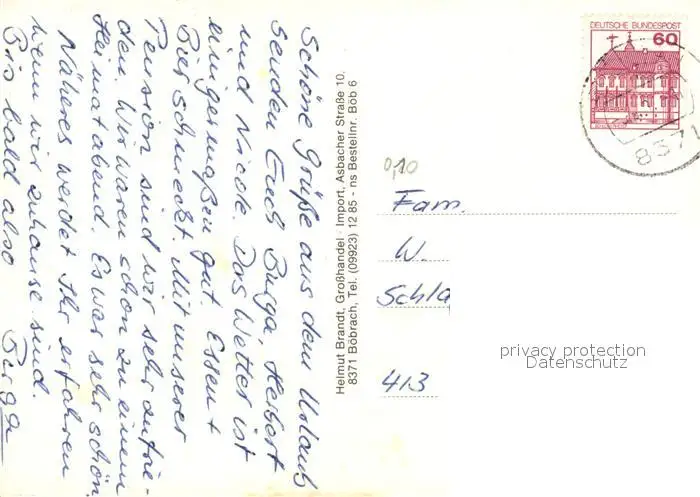 Schöne Grüße aus dem Urlaub
senden Euch Burga, Herbert
und Nicole. Das Wetter ist
einigermaßen gut. Essen +
Bier schmeckt. Mit unserer
Pension sind wir sehr zufrie-
den. Wir waren schon zu einem
Heimatabend. Es war sehr schön.
Näheres werdet Ihr erfahren
wenn wir zuhause sind.
Bis bald also
Burga
Helmut Brandt, Großhandel - Import, Asbacher Straße 10,
8371 Böbrach, Tel. (09923) 12 85 - ns Bestellnr. Böb 6
DEUTSCHE BUNDESPOST
60
837
0,10
Fam.
W.
Schla
413
privacy protection
Datenschutz